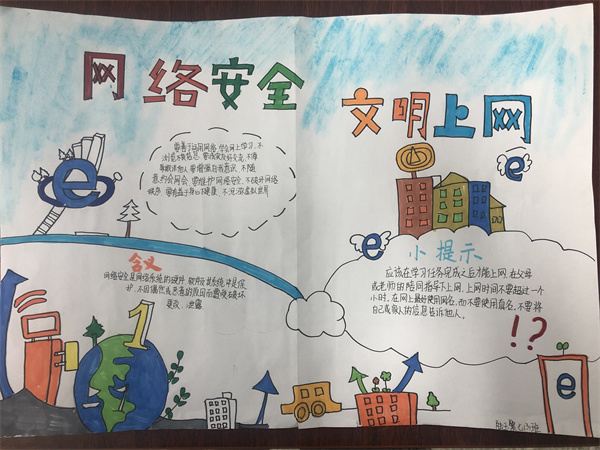 网络安全
文明上网
要善于运用网络学会网上学习,不
浏览不良信息,要诚实友好交流,不侮
辱欺诈他人,要增强自护意识,不随
意约会网会,要维护网络安全,不破坏网络
秩序,要有益于身心健康,不沉溺虚拟世界
含义
网络安全是网络系统的硬件,软件及其系统中是保
护,不因偶然或恶意的原因而遭受破坏
更改,泄露
小提示
应该在学习任务完成之后才能上网,在父母
或老师的陪同指导下上网,上网时间不要超过一个
小时,在网上最好使用网名,而不要使用真名,不要将
自己或家人的信息告诉他人。
!?
1
e
e
e
e